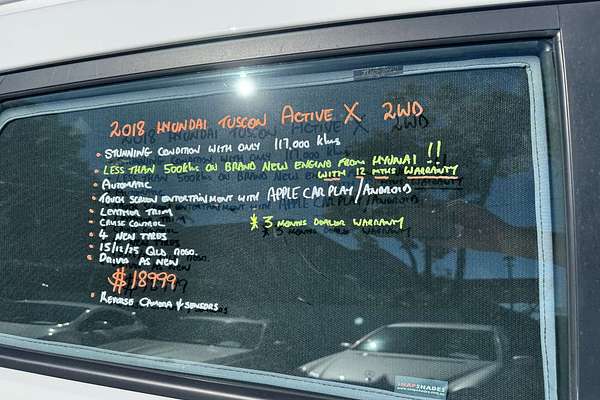 2018 HYUNDAI TUSCON ACTIVE X 2WD
• STUNNING CONDITION WITH ONLY 117,000 kms
• LESS THAN 500kms ON BRAND NEW ENGINE FROM HYUNAI !!
WITH 12 MTHS WARRANTY
• AUTOMATIC
• TOUCH SCREEN ENTERTAINMENT WITH APPLE CAR PLAY/ANDROID
• LEATHER TRIM
• CRUISE CONTROL
* 3 MONTHS DEALER WARRANTY
• 4 NEW TYRES
• 15/12/25 QLD REGO.
• DRIVES AS NEW
• $18999
• REVERSE CAMERA & SENSORS
SNAPSHADES